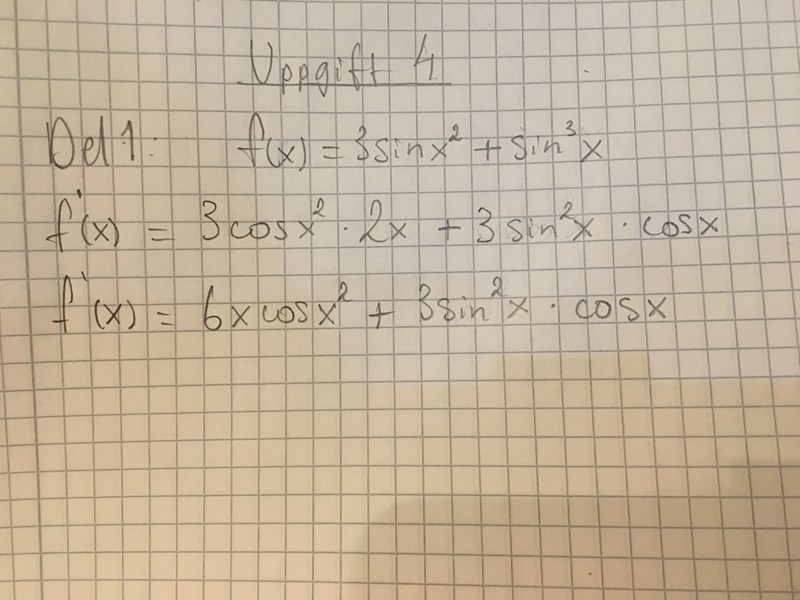 Uppgift 4
Del 1: f(x) = 3sinx² + sin³x
f'(x) = 3cosx² · 2x + 3sin²x · cosx
f'(x) = 6xcosx² + 3sin²x · cosx